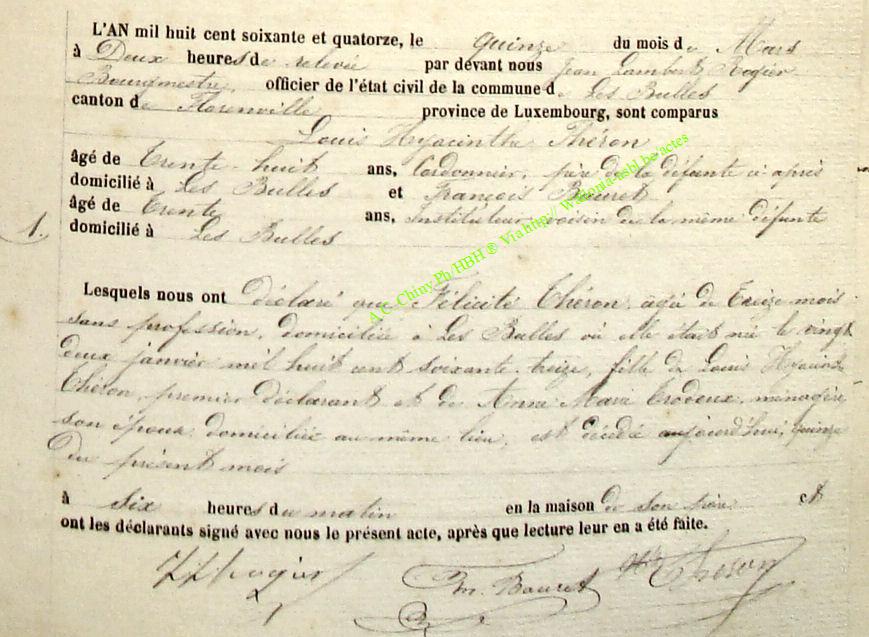 L'AN mil huit cent soixante et quatorze, le quinze du mois de Mars
à Deux heures de relevée par devant nous Jean Lambert Rogier
Bourgmestre, officier de l'état civil de la commune de Les Bulles
canton de Florenville province de Luxembourg, sont comparus
Louis Hyacinthe Théron
âgé de Trente-huit ans, Cordonnier, père de la défunte ci-après
domicilié à Les Bulles et François Bouret
âgé de Trente ans, Instituteur, voisin de la même défunte
domicilié à Les Bulles
1.
Lesquels nous ont déclaré que Félicité Théron, âgée de Treize mois
sans profession, domiciliée à Les Bulles où elle était née le vingt
deux janvier mil huit cent soixante-treize, fille de Louis Hyacinthe
Théron, premier déclarant et de Anne Marie Trodeux, ménagère,
son épouse domiciliée au même lieu, est décédée aujourd'hui, quinze
du présent mois
à six heures du matin en la maison de son père et
ont les déclarants signé avec nous le présent acte, après que lecture leur en a été faite.
JLRogier Fn. Bouret Hte Théron
A.C. Chiny Ph/HBH ® Via http:// Wallonia-asbl.be/actes